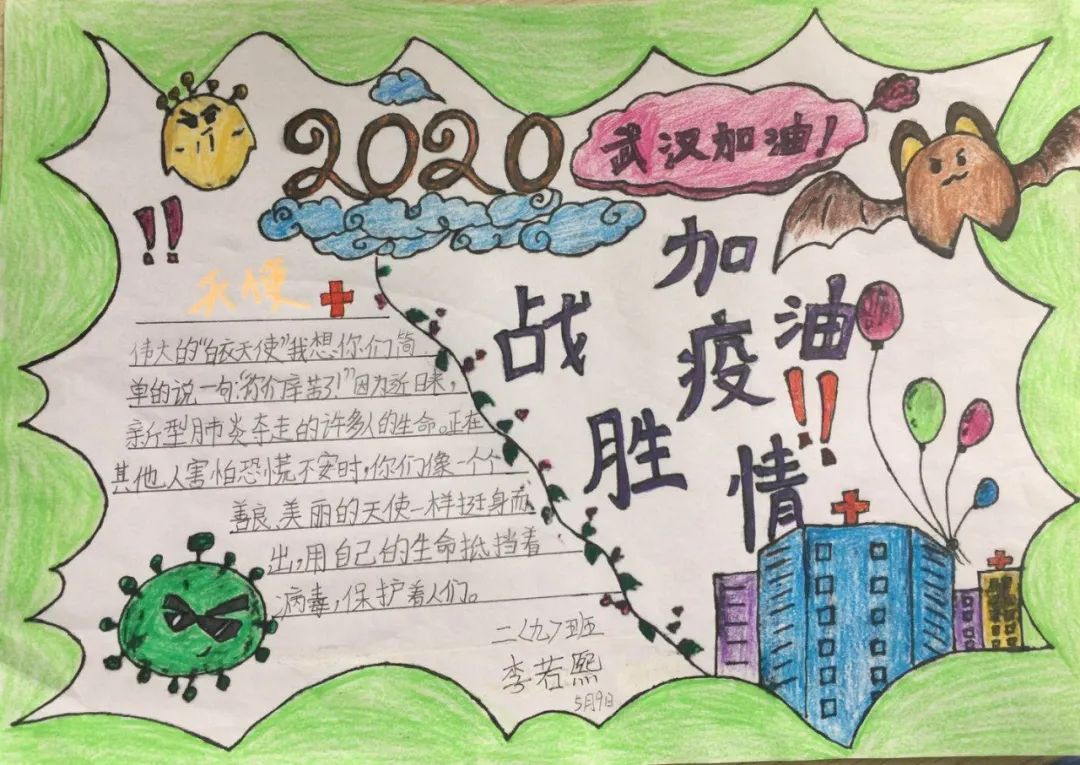 2020
武汉加油！
!!
加油!!
战胜疫情
天使
伟大的“白衣天使”我想你们简
单的说一句：“你们辛苦了！”因为近日来，
新型肺炎夺走的许多人的生命。正在
其他人害怕恐慌不安时，你们像一个个
善良、美丽的天使一样挺身而
出，用自己的生命抵挡着
病毒，保护着人们。
二〈九〉班
李若熙
5月9日